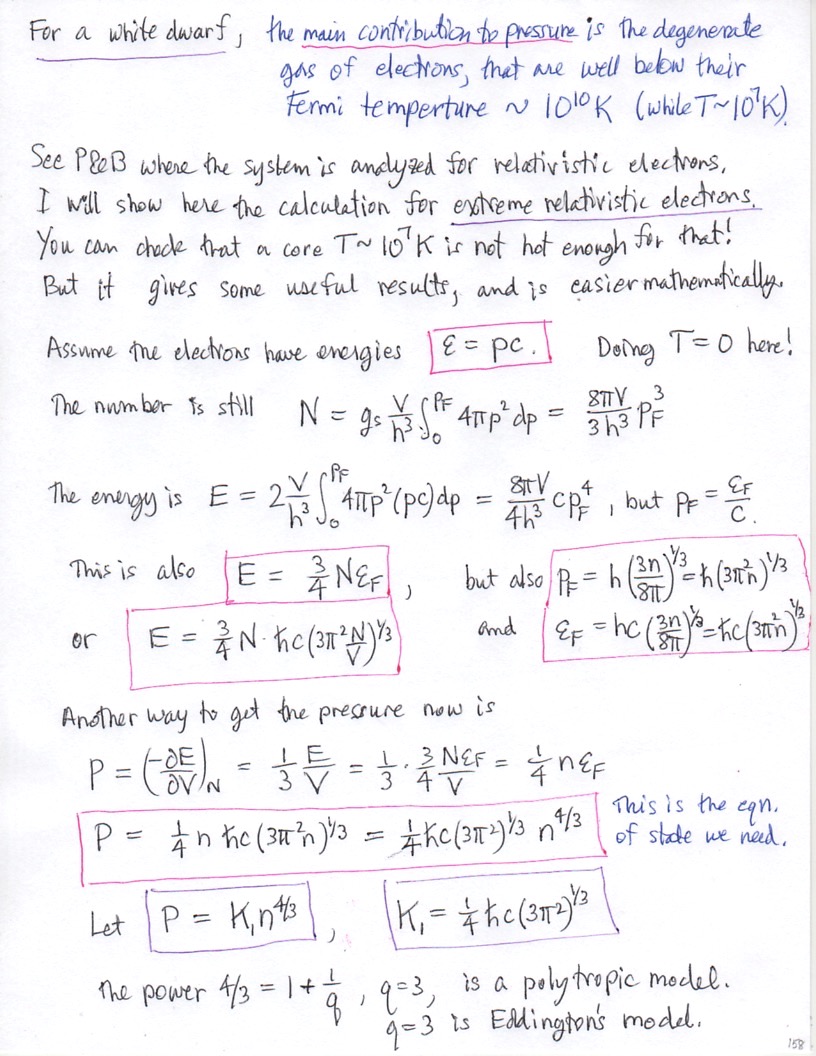 For a white dwarf, the main contribution to pressure is the degenerate
gas of electrons, that are well below their
Fermi temperture ~ 10¹⁰K (while T~10⁷K).
See P&B where the system is analyzed for relativistic electrons,
I will show here the calculation for extreme relativistic electrons.
You can check that a core T~10⁷K is not hot enough for that!
But it gives some useful results, and is easier mathematically.
Assume the electrons have energies ε = pc. Doing T=0 here!
The number is still N = gₛ V/h³ ∫₀^{p_F} 4πp² dp = 8πV/3h³ p_F³
The energy is E = 2 V/h³ ∫₀^{p_F} 4πp²(pc)dp = 8πV/4h³ c p_F⁴, but p_F = ε_F/c.
This is also E = 3/4 Nε_F, but also p_F = h(3n/8π)^{1/3} = ħ(3π²n)^{1/3}
or E = 3/4 N·ħc(3π² N/V)^{1/3} and ε_F = hc(3n/8π)^{1/3} = ħc(3π²n)^{1/3}
Another way to get the pressure now is
P = (-∂E/∂V)_N = 1/3 E/V = 1/3 · 3/4 Nε_F/V = 1/4 nε_F
P = 1/4 n ħc(3π²n)^{1/3} = 1/4 ħc(3π²)^{1/3} n^{4/3} This is the eqn.
of state we need.
Let P = K₁n^{4/3}, K₁ = 1/4 ħc(3π²)^{1/3}
The power 4/3 = 1 + 1/q, q=3, is a polytropic model.
q=3 is Eddington's model.
158